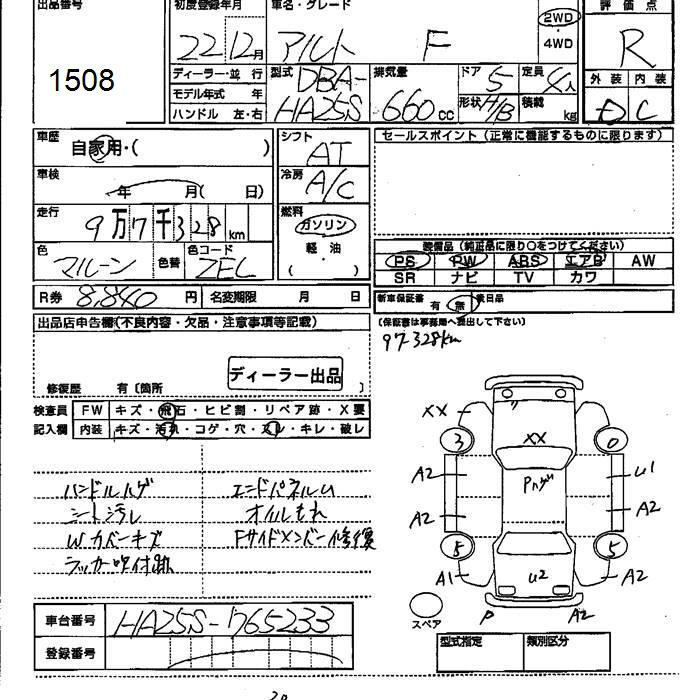 出品番号 初度登録年月 車名・グレード 評価点
1508 22 12月 アルト F 2WD・4WD R
ディーラー・並行 型式 排気量 ドア 定員 外装 内装
モデル年式 年 DBA- 5 4人
ハンドル 左・右 HA25S 660cc 形状 H/B 積載 kg D C
車歴 シフト セールスポイント (正常に機能するものに限ります)
自家用・( ) AT
車検 冷房
年 月( 日) A/C
走行 燃料
9万7千328km ガソリン
色 色替 色コード 軽・油 装備品 (純正品に限り○をつけてください)
マルーン ZEL ( ) PS PW ABS エアB AW
SR ナビ TV カワ
R券 8,840円 名変期限 月 日 新車保証書 有 無 後日品
出品店申告欄(不良内容・欠品・注意事項等記載) (保証書は事務局へ提出して下さい)
97.328km
ディーラー出品
修復歴 有〔箇所 〕
検査員 FW キズ・飛石・ヒビ割・リペア跡・X要
記入欄 内装 キズ・汚れ・コゲ・穴・スレ・キレ・破レ
XX
3 XX 0
A2 Pハゲ U1
ハンドルハゲ エンドパネルU
シート汚レ オイルもれ A2 A2
Wカバーキズ Fサイドメンバー修復
ラッカー吹付跡 5 5
A1 U2 A2
スペア P A2
車台番号 HA25S-765233
型式指定 類別区分
登録番号